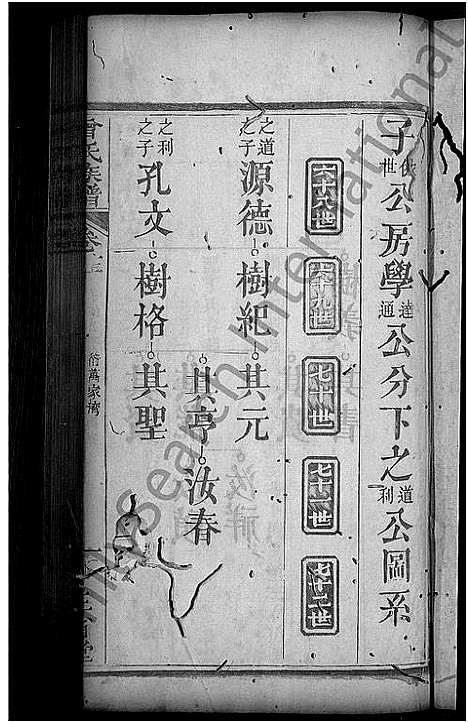 子佚世公房學達通公分下之道利公圖系
六十八世
六十九世
七十世
七十一世
七十二世
之道之子 源德 樹紀 其元
其亨 汝春
之利之子 孔文 樹格 其聖
曾氏族譜 卷之三
衍萬家灣